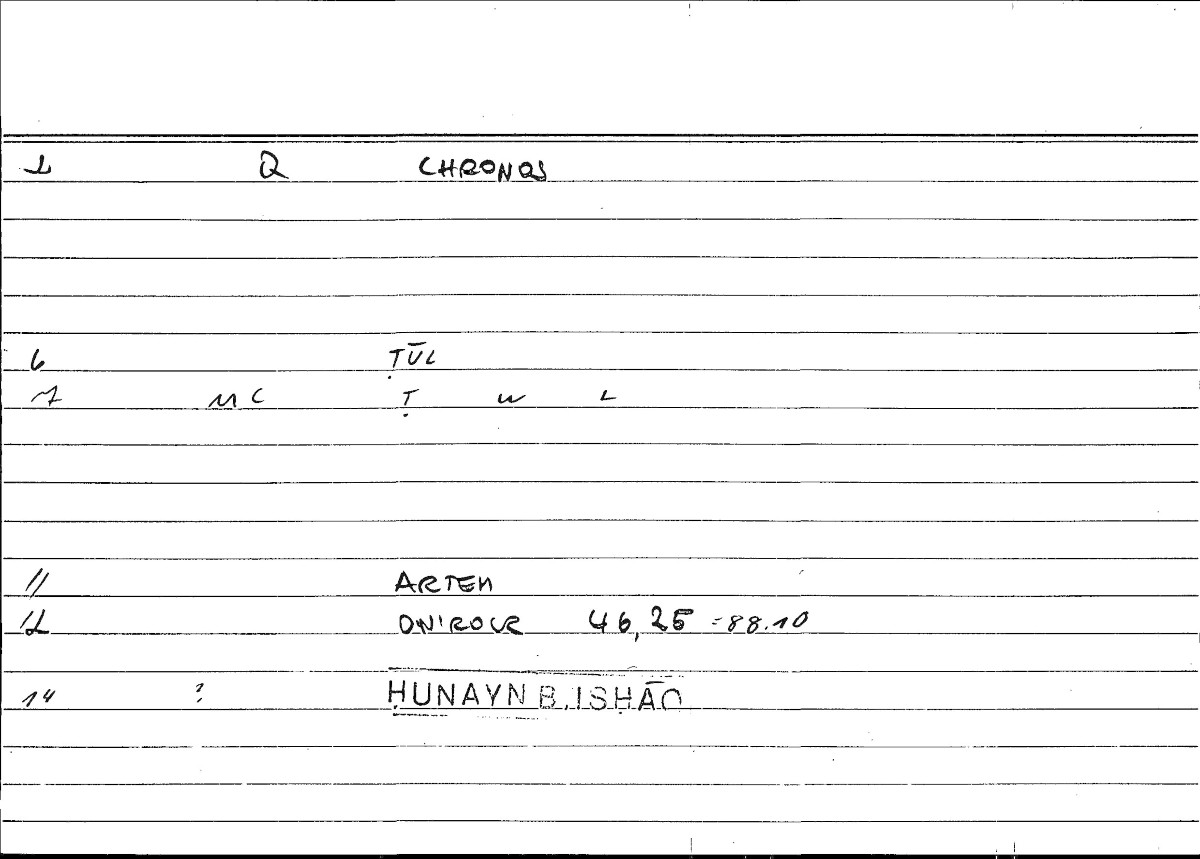 1 Q CHRONOS
6 ṬŪL
7 MC Ṭ W L
11 ARTEM
12 ONIROCR 46,25 = 88.10
14 ? ḤUNAYN B. ISḤĀQ